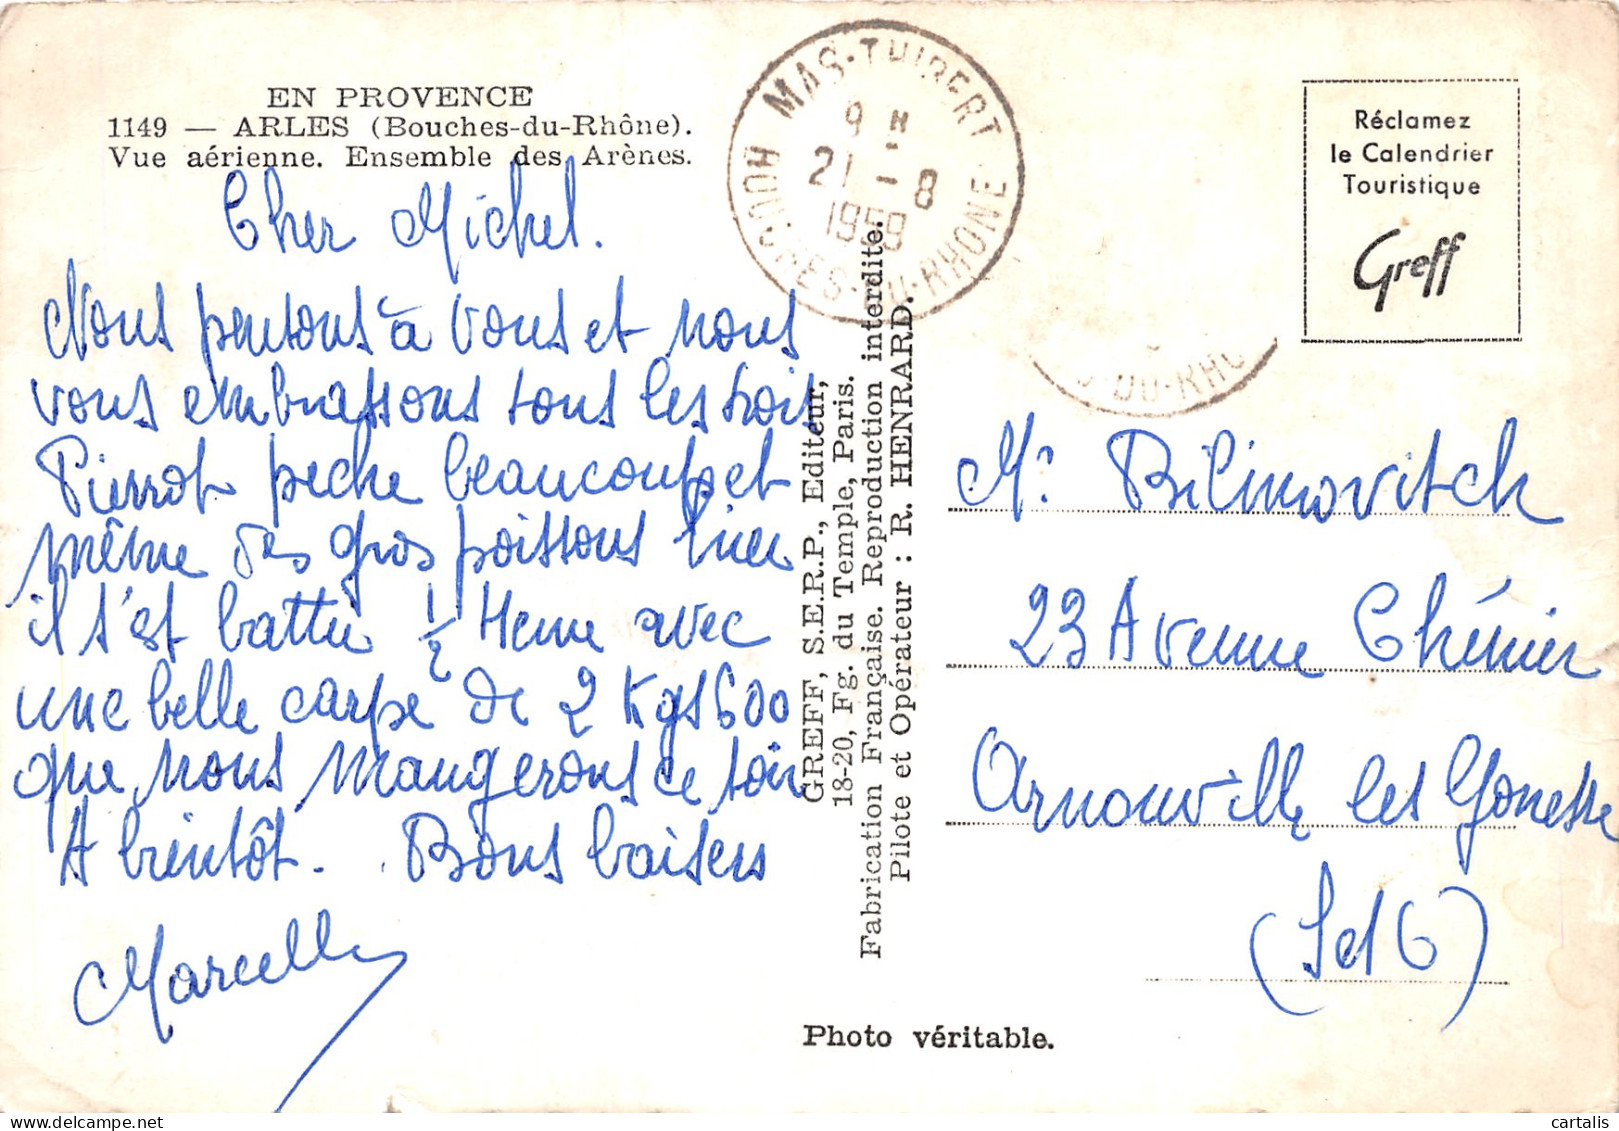 EN PROVENCE
1149 — ARLES (Bouches-du-Rhône).
Vue aérienne. Ensemble des Arènes.
Cher Michel.
Nous pensons à vous et nous
vous embrassons tous les trois
Pierrot peche beaucoup et
même des gros poissons hier
il s'est battu 1/2 Heure avec
une belle carpe de 2 Kgs 600
que nous mangerons ce soir
A bientôt. Bons baisers
Marcelle
MAS-THIBERT
9 H
21 - 8
1959
BOUCHES-DU-RHONE
DU-RHO
GREFF, S.E.R.P., Editeur,
18-20, Fg. du Temple, Paris.
Fabrication Française. Reproduction interdite.
Pilote et Opérateur : R. HENRARD.
Photo véritable.
Réclamez
le Calendrier
Touristique
Greff
Mr Bilimovitch
23 Avenue Chénier
Arnouville les Gonesse
(S et O)
cartalis